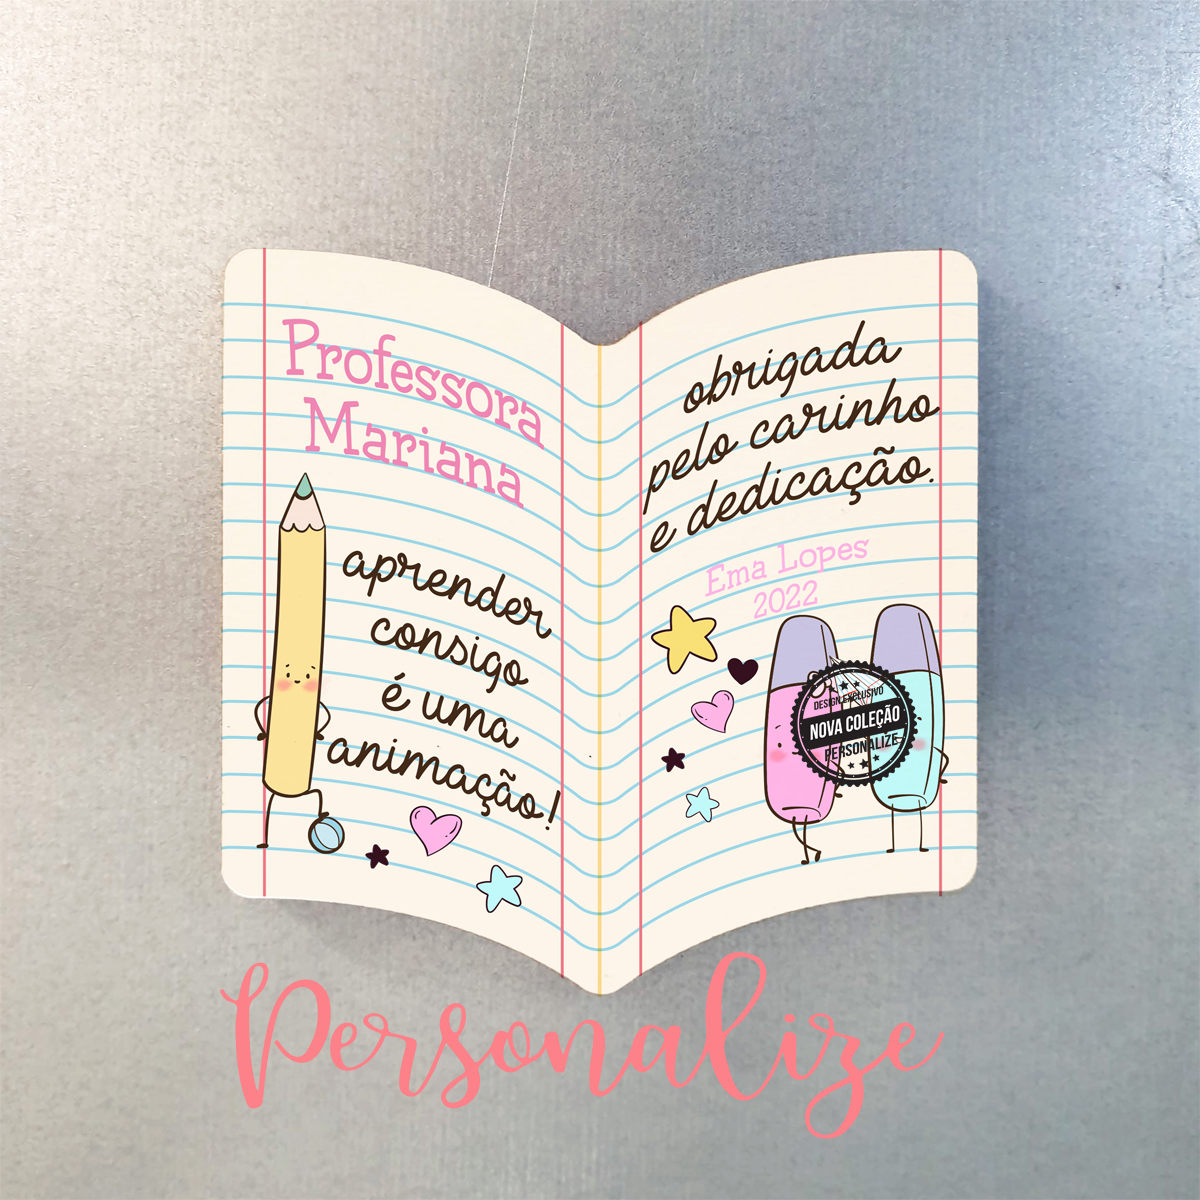 Professora
Mariana
aprender
consigo
é uma
animação!
obrigada
pelo carinho
e dedicação.
Ema Lopes
2022
DESIGN EXCLUSIVO
NOVA COLEÇÃO
PERSONALIZE
Personalize